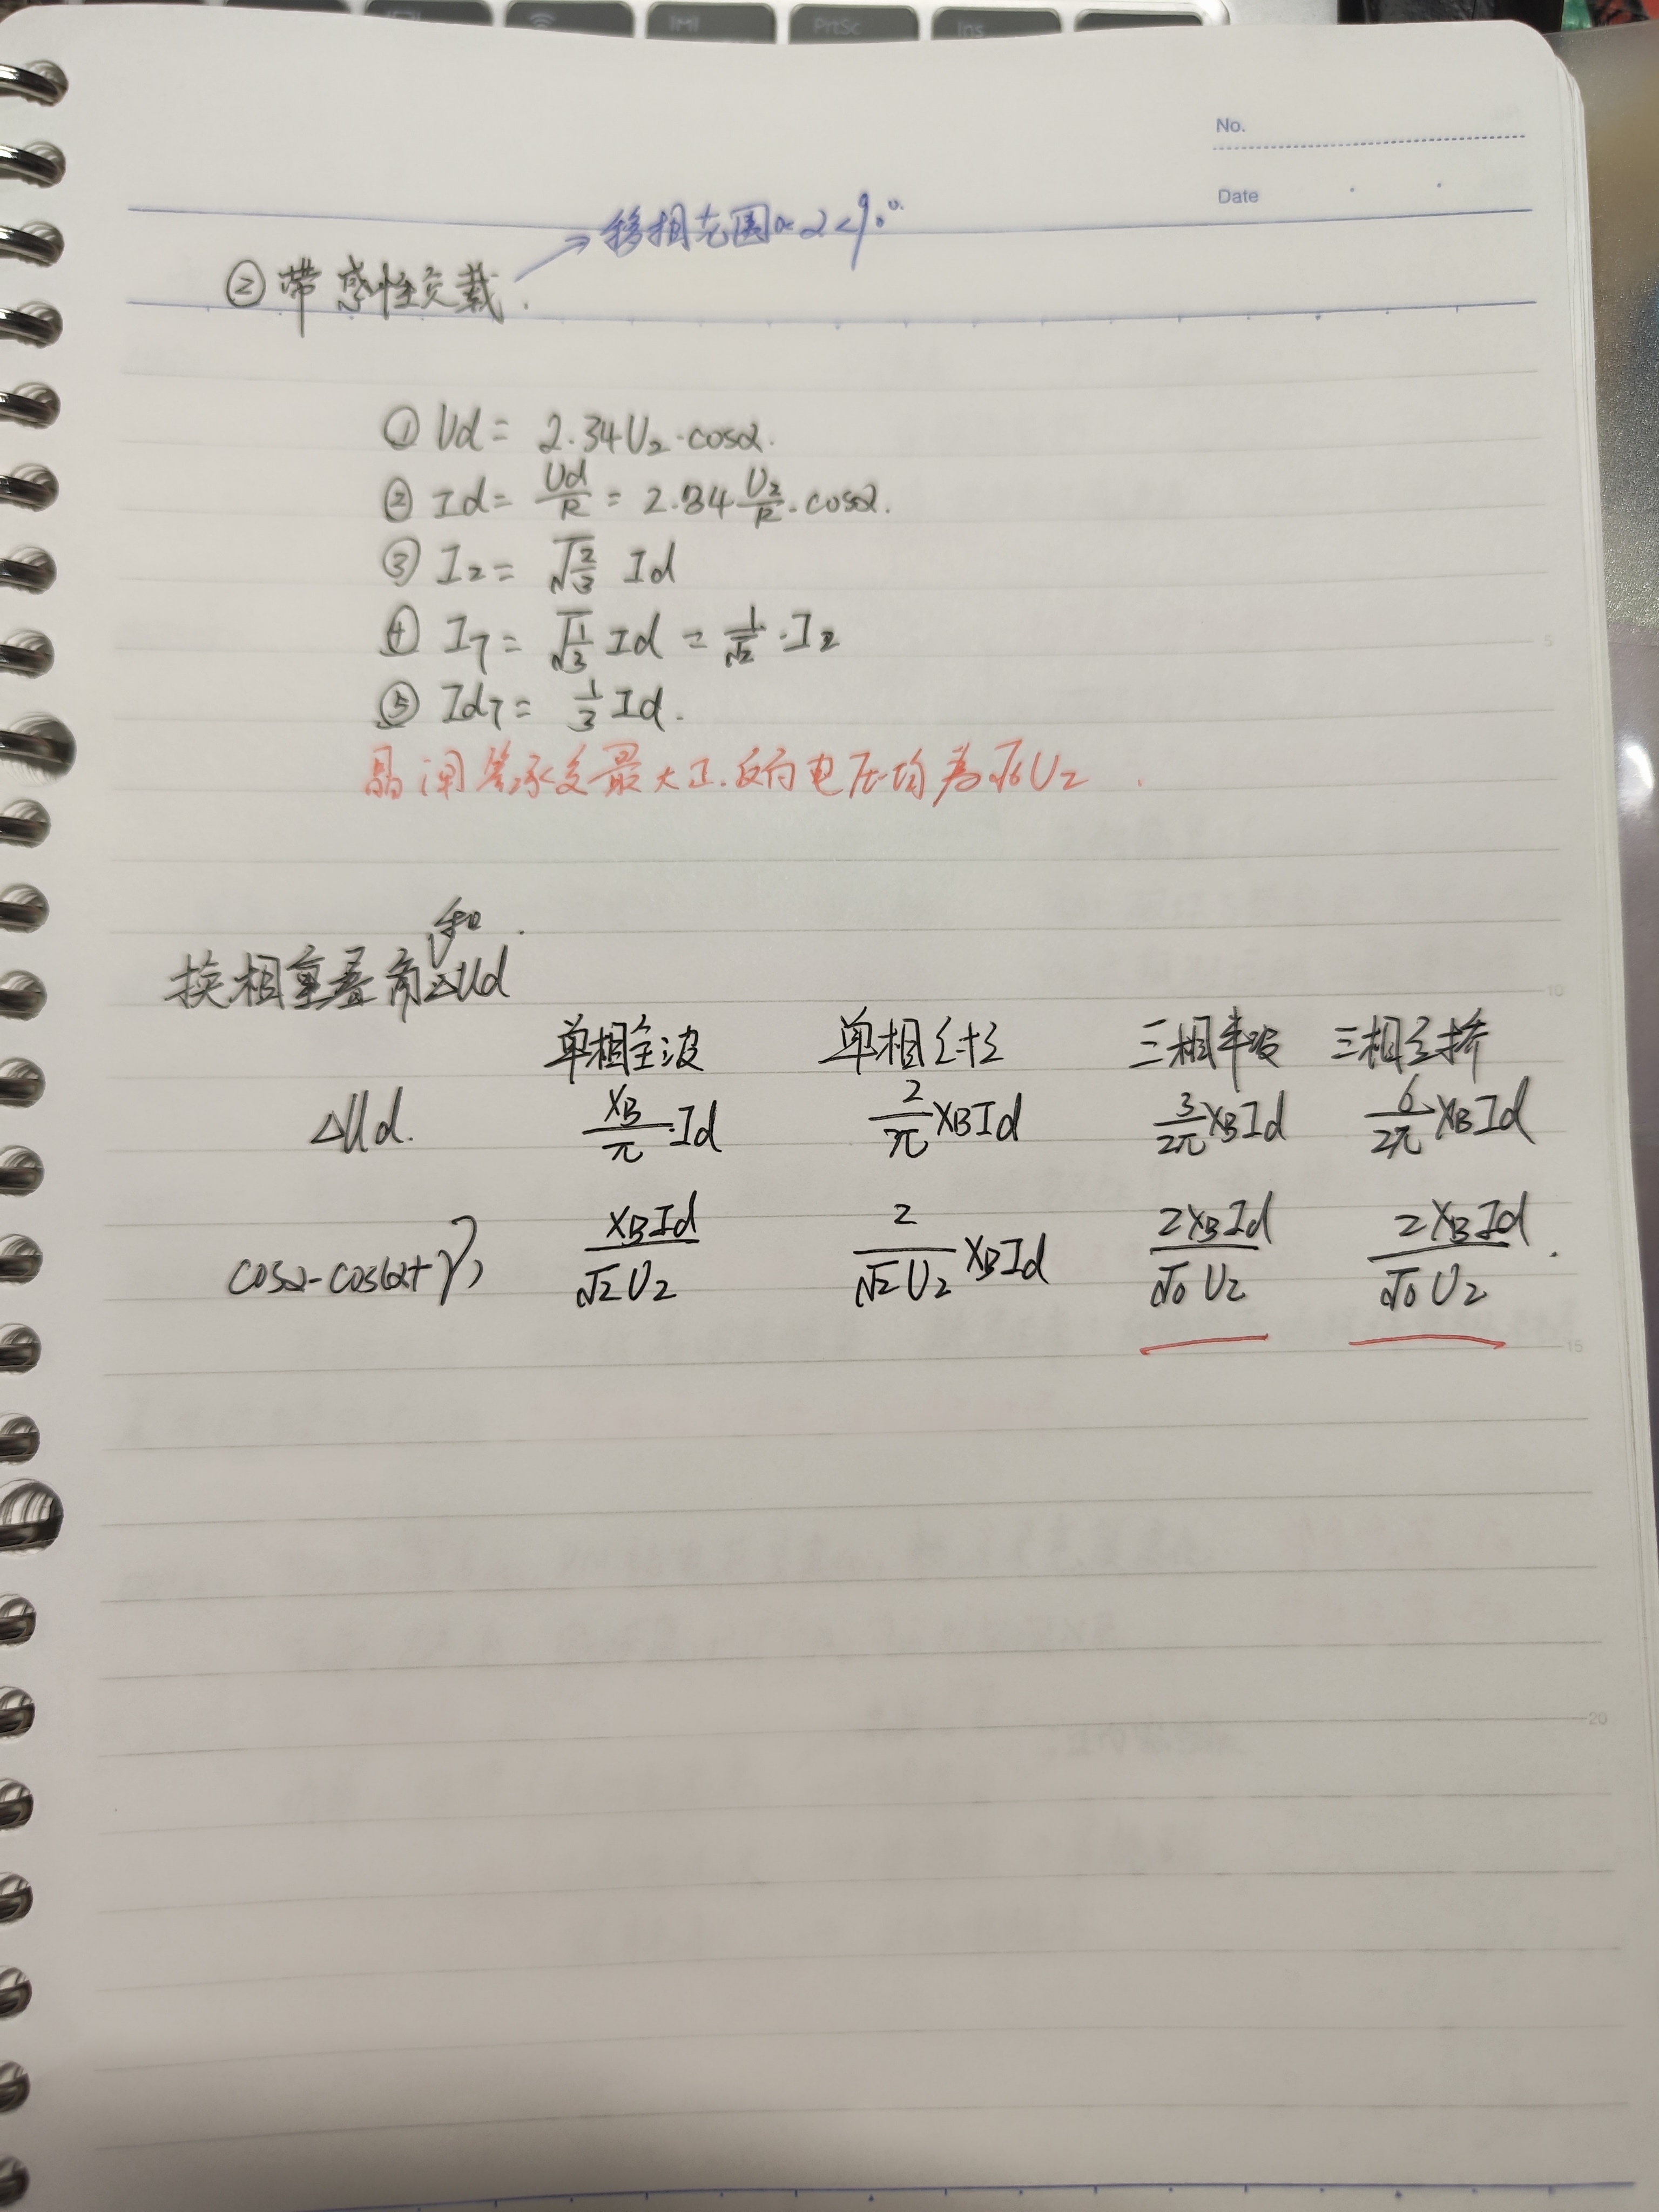 PrtSc
Ins
No.
Date
→移相范围0<α<90°
②带感性负载.
① Ud = 2.34U₂·cosα.
② Id = Ud/R = 2.34 U₂/R·cosα.
③ I₂ = √(2/3) Id
④ I_T = √(1/3) Id = 1/√2·I₂
⑤ Id_T = 1/3 Id.
晶闸管承受最大正.反向电压均为√6U₂.
5
换相重叠角和ΔUd
10
单相全波 单相全控 三相半波 三相全桥
ΔUd. X_B/π·Id 2/π X_B Id 3/2π X_B Id 6/2π X_B Id
cosα-cos(α+γ) X_B Id/√2 U₂ 2/√2 U₂ X_B Id 2X_B Id/√6 U₂ 2X_B Id/√6 U₂.
15
20